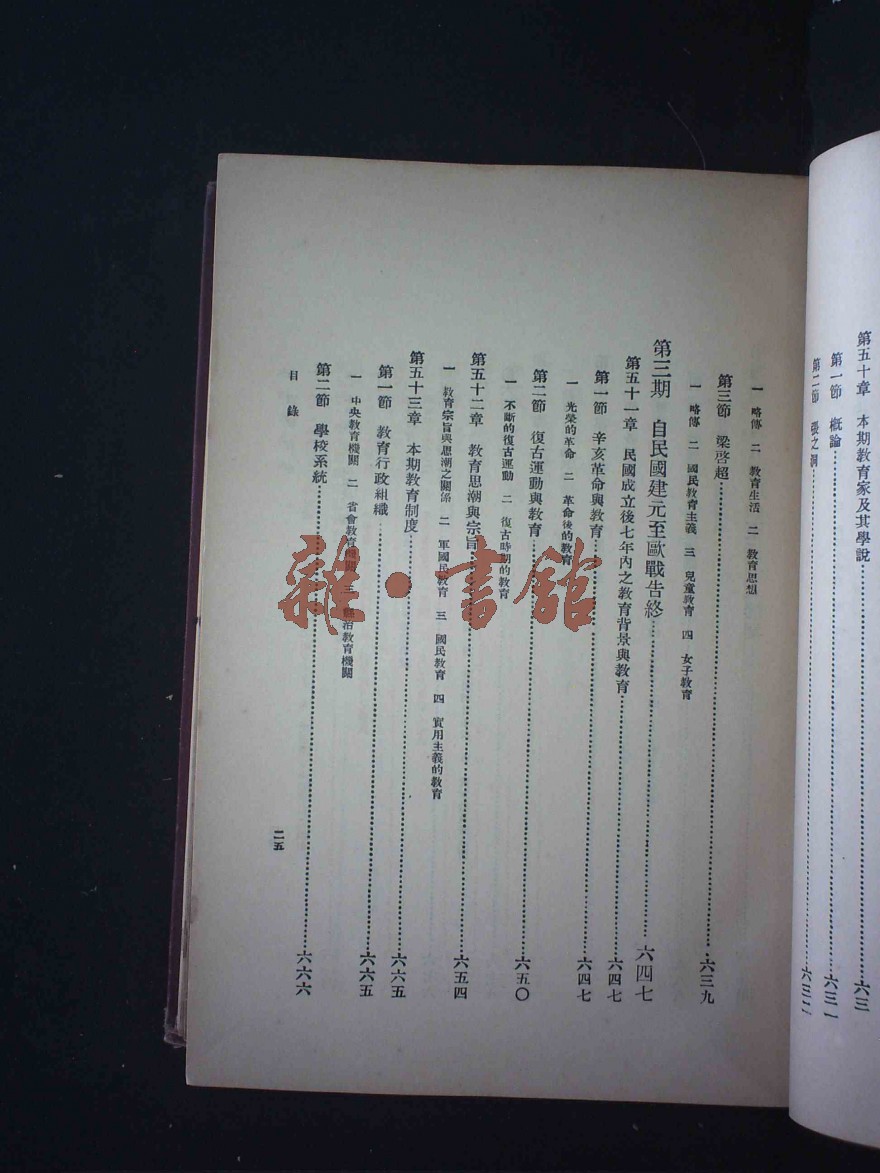 第五十章　本期教育家及其學說………六三
第一節　概論………六三一
第二節　張之洞………六三二
一　略傳　二　教育生活　二　教育思想
第三節　梁啓超………六三九
一　略傳　二　國民教育主義　三　兒童教育　四　女子教育
第三期　自民國建元至歐戰告終………六四七
第五十一章　民國成立後七年內之教育背景與教育………六四七
第一節　辛亥革命與教育………六四七
一　光榮的革命　二　革命後的教育
第二節　復古運動與教育………六五〇
一　不斷的復古運動　二　復古時期的教育
第五十二章　教育思潮與宗旨………六五四
一　教育宗旨與思潮之關係　二　軍國民教育　三　國民教育　四　實用主義的教育
第五十三章　本期教育制度………六六五
第一節　教育行政組織………六六五
一　中央教育機關　二　省會教育機關　三　縣治教育機關
第二節　學校系統………六六六
目錄
二五
雜·書館